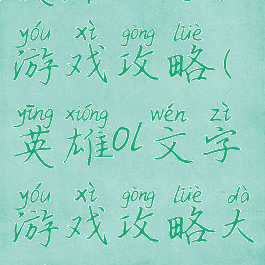 yóu xì gōng lüè
游戏攻略(
yīng xióng wén zì
英雄Ol文字
yóu xì gōng lüè dà
游戏攻略大